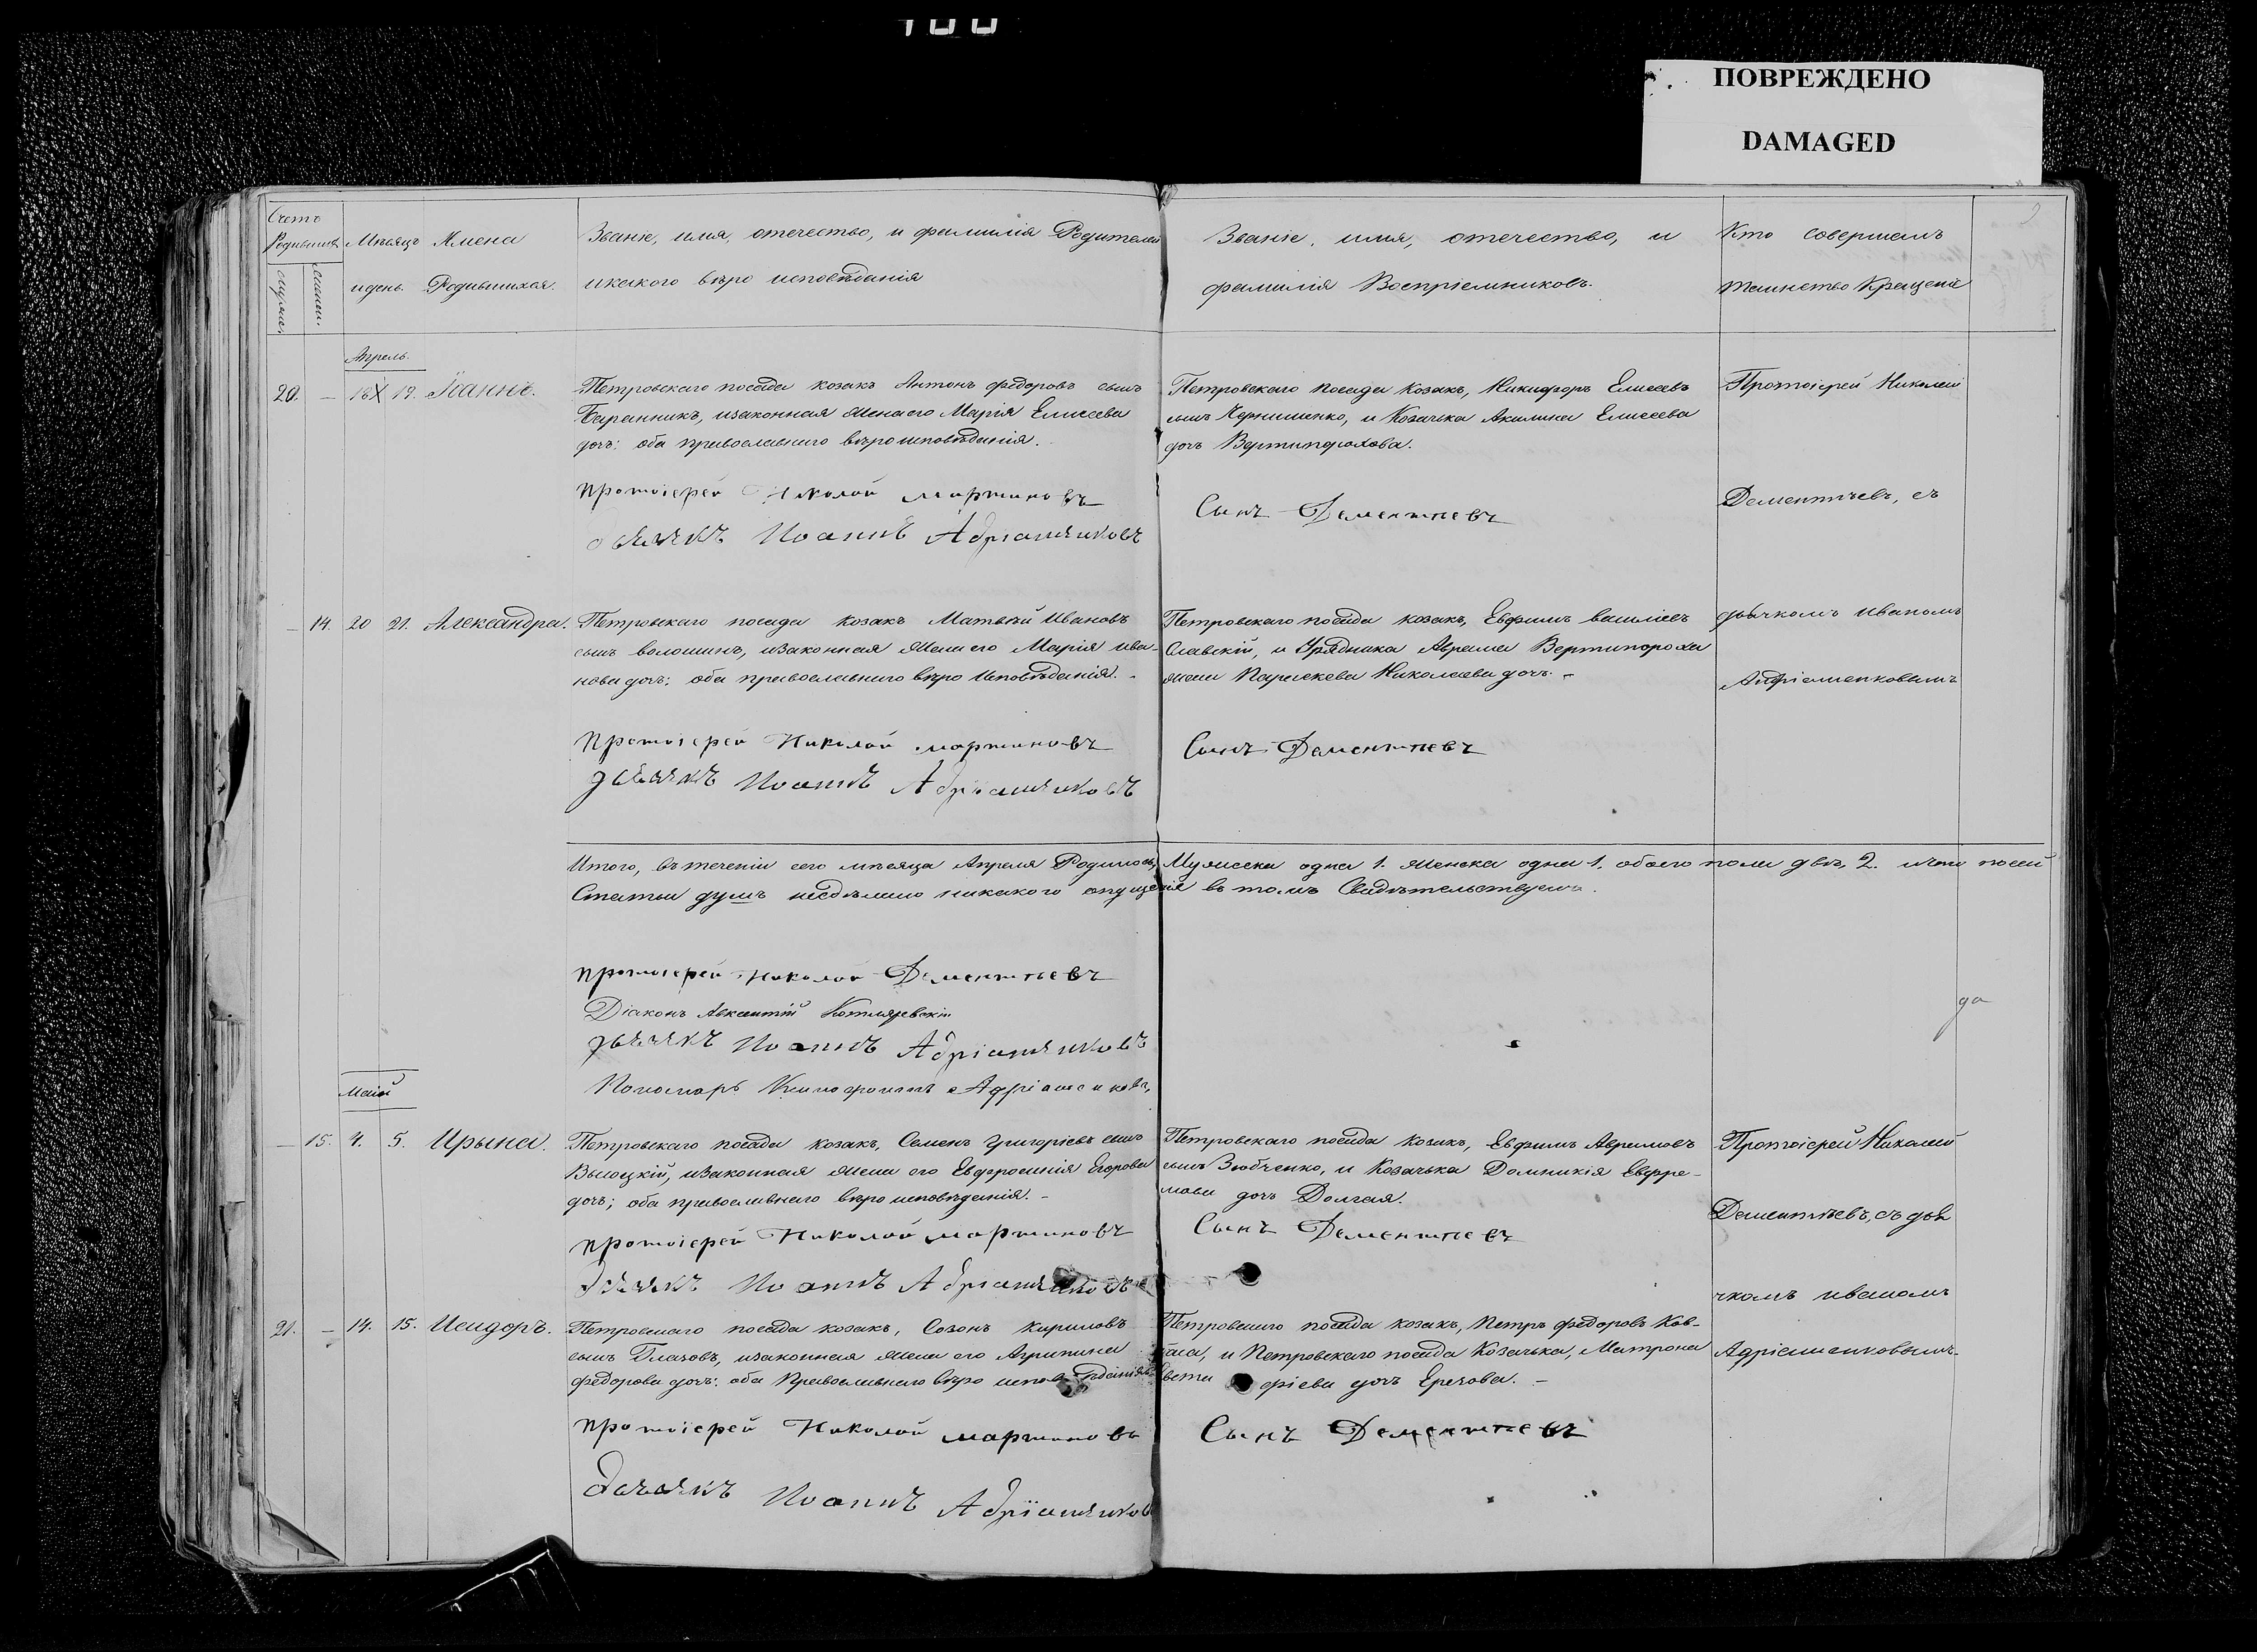 ПОВРЕЖДЕНО
DAMAGED
Счетъ
Мѣсяцъ
и день.
Имена
Родившихся.
Званіе, имя, отечество, и фамилія Родителей
и какого вѣро исповѣданія
Званіе, имя, отечество, и
фамилія Воспріемниковъ.
Кто совершалъ
таинство Крещенія
Апрель.
20. — 18 19. Іоаннъ.
Петровскаго посада козакъ Антонъ федоровъ сынъ
Баранникъ, изаконная жена его Марія Елисеева
дочь; оба православнаго вѣроисповѣданія.
Петровскаго посада козакъ, Никифоръ Елисеевъ
сынъ Чернишенко, и Козачка Акилина Елисеева
дочь Вертипорохова.
Протоіерей Николай
Дементьевъ, съ
протоіерей Николай мартиновъ
Сынъ Дементіевъ
дьячекъ Иоаннъ
— 14. 20 21. Александра.
Петровскаго посада козакъ Матвѣй Ивановъ
сынъ волошинъ, изаконная жена его Марія ива-
нова дочь; оба православнаго вѣро исповѣданія. -
Петровскаго посада козакъ, Евфимъ василіевъ
Славскій, и Урядника Аврама Вертипороха
жена Параскева Николаева дочь. -
дьячкомъ иваномъ
протоіерей Николай мартиновъ
Сынъ Дементіевъ
дьячекъ Иоаннъ
Итого, въ теченіи сего мѣсяца Апреля Родилось, Мужеска одна 1. женска одна 1. обоего пола двѣ, 2. что по сей
Статьи душъ несдѣлано никакого опущеніе въ томъ Свидѣтельствуемъ.
протоіерей Николай Дементіевъ
Діаконъ Авксентій Котляревскій
дьячекъ Иоаннъ
Пономарь
да
Май
— 15. 4. 5. Ирына.
Петровскаго посада козакъ, Семенъ Григоріевъ сынъ
Высоцкій, изаконная жена его Евфросинія Егорова
дочь; оба православнаго вѣро исповѣданія. -
Петровскаго посада козакъ, Евфимъ Аврамовъ
сынъ Зюбченко, и Козачька Домникія Евфре-
мова дочь Долгая.
Протоіерей Николай
Дементьевъ, съ дья
чкомъ иваномъ
протоіерей Николай мартиновъ
Сынъ Дементіевъ
дьячекъ Иоаннъ
21. — 14. 15. Исидоръ.
Петровскаго посада козакъ, Созонъ Кириловъ
сынъ Глазовъ, изаконная жена его Агрипина
федорова дочь: оба Православнаго вѣро исповѣданія
Петровскаго посада козакъ, Петръ федоровъ
и Петровскаго посада Козачька, Матрона
дочь
протоіерей Николай мартиновъ
Сынъ Дементіевъ
дьячекъ Иоаннъ